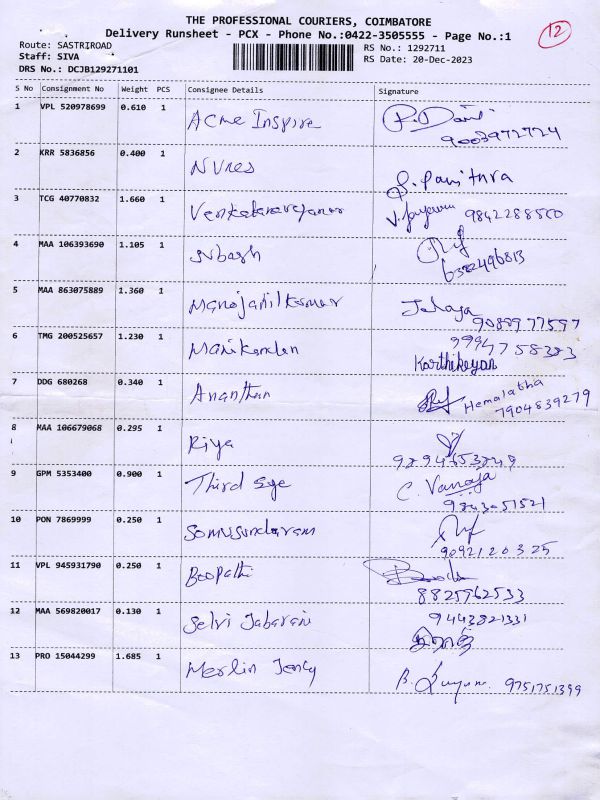 THE PROFESSIONAL COURIERS, COIMBATORE
Delivery Runsheet - PCX - Phone No.:0422-3505555 - Page No.:1
12
Route: SASTRIROAD
RS No.: 1292711
Staff: SIVA
RS Date: 20-Dec-2023
DRS No.: DCJB129271101
S No Consignment No Weight PCS Consignee Details Signature
1 VPL 520978699 0.610 1 Acme Inspire
9003972724
2 KRR 5836856 0.400 1 NVRes P. Pavithra
3 TCG 40770832 1.660 1 9842288500
4 MAA 106393690 1.105 1
6382496813
5 MAA 863075889 1.360 1 Manojanilkumar
9089977597
6 TMG 200525657 1.230 1 Manikandan 9994758383
Karthikeyan
7 DDG 680268 0.340 1 Ananthan Hemalatha
7904839279
8 MAA 106679068 0.295 1 Riya
9 GPM 5353400 0.900 1 Third eye C. Vanaja
10 PON 7869999 0.250 1 Somusundaram
9092120325
11 VPL 945931790 0.250 1 Boopathi
8825962533
12 MAA 569820017 0.130 1 Selvi Jabarani 9443821331
13 PRO 15044299 1.685 1 Merlin Jency 9751751399